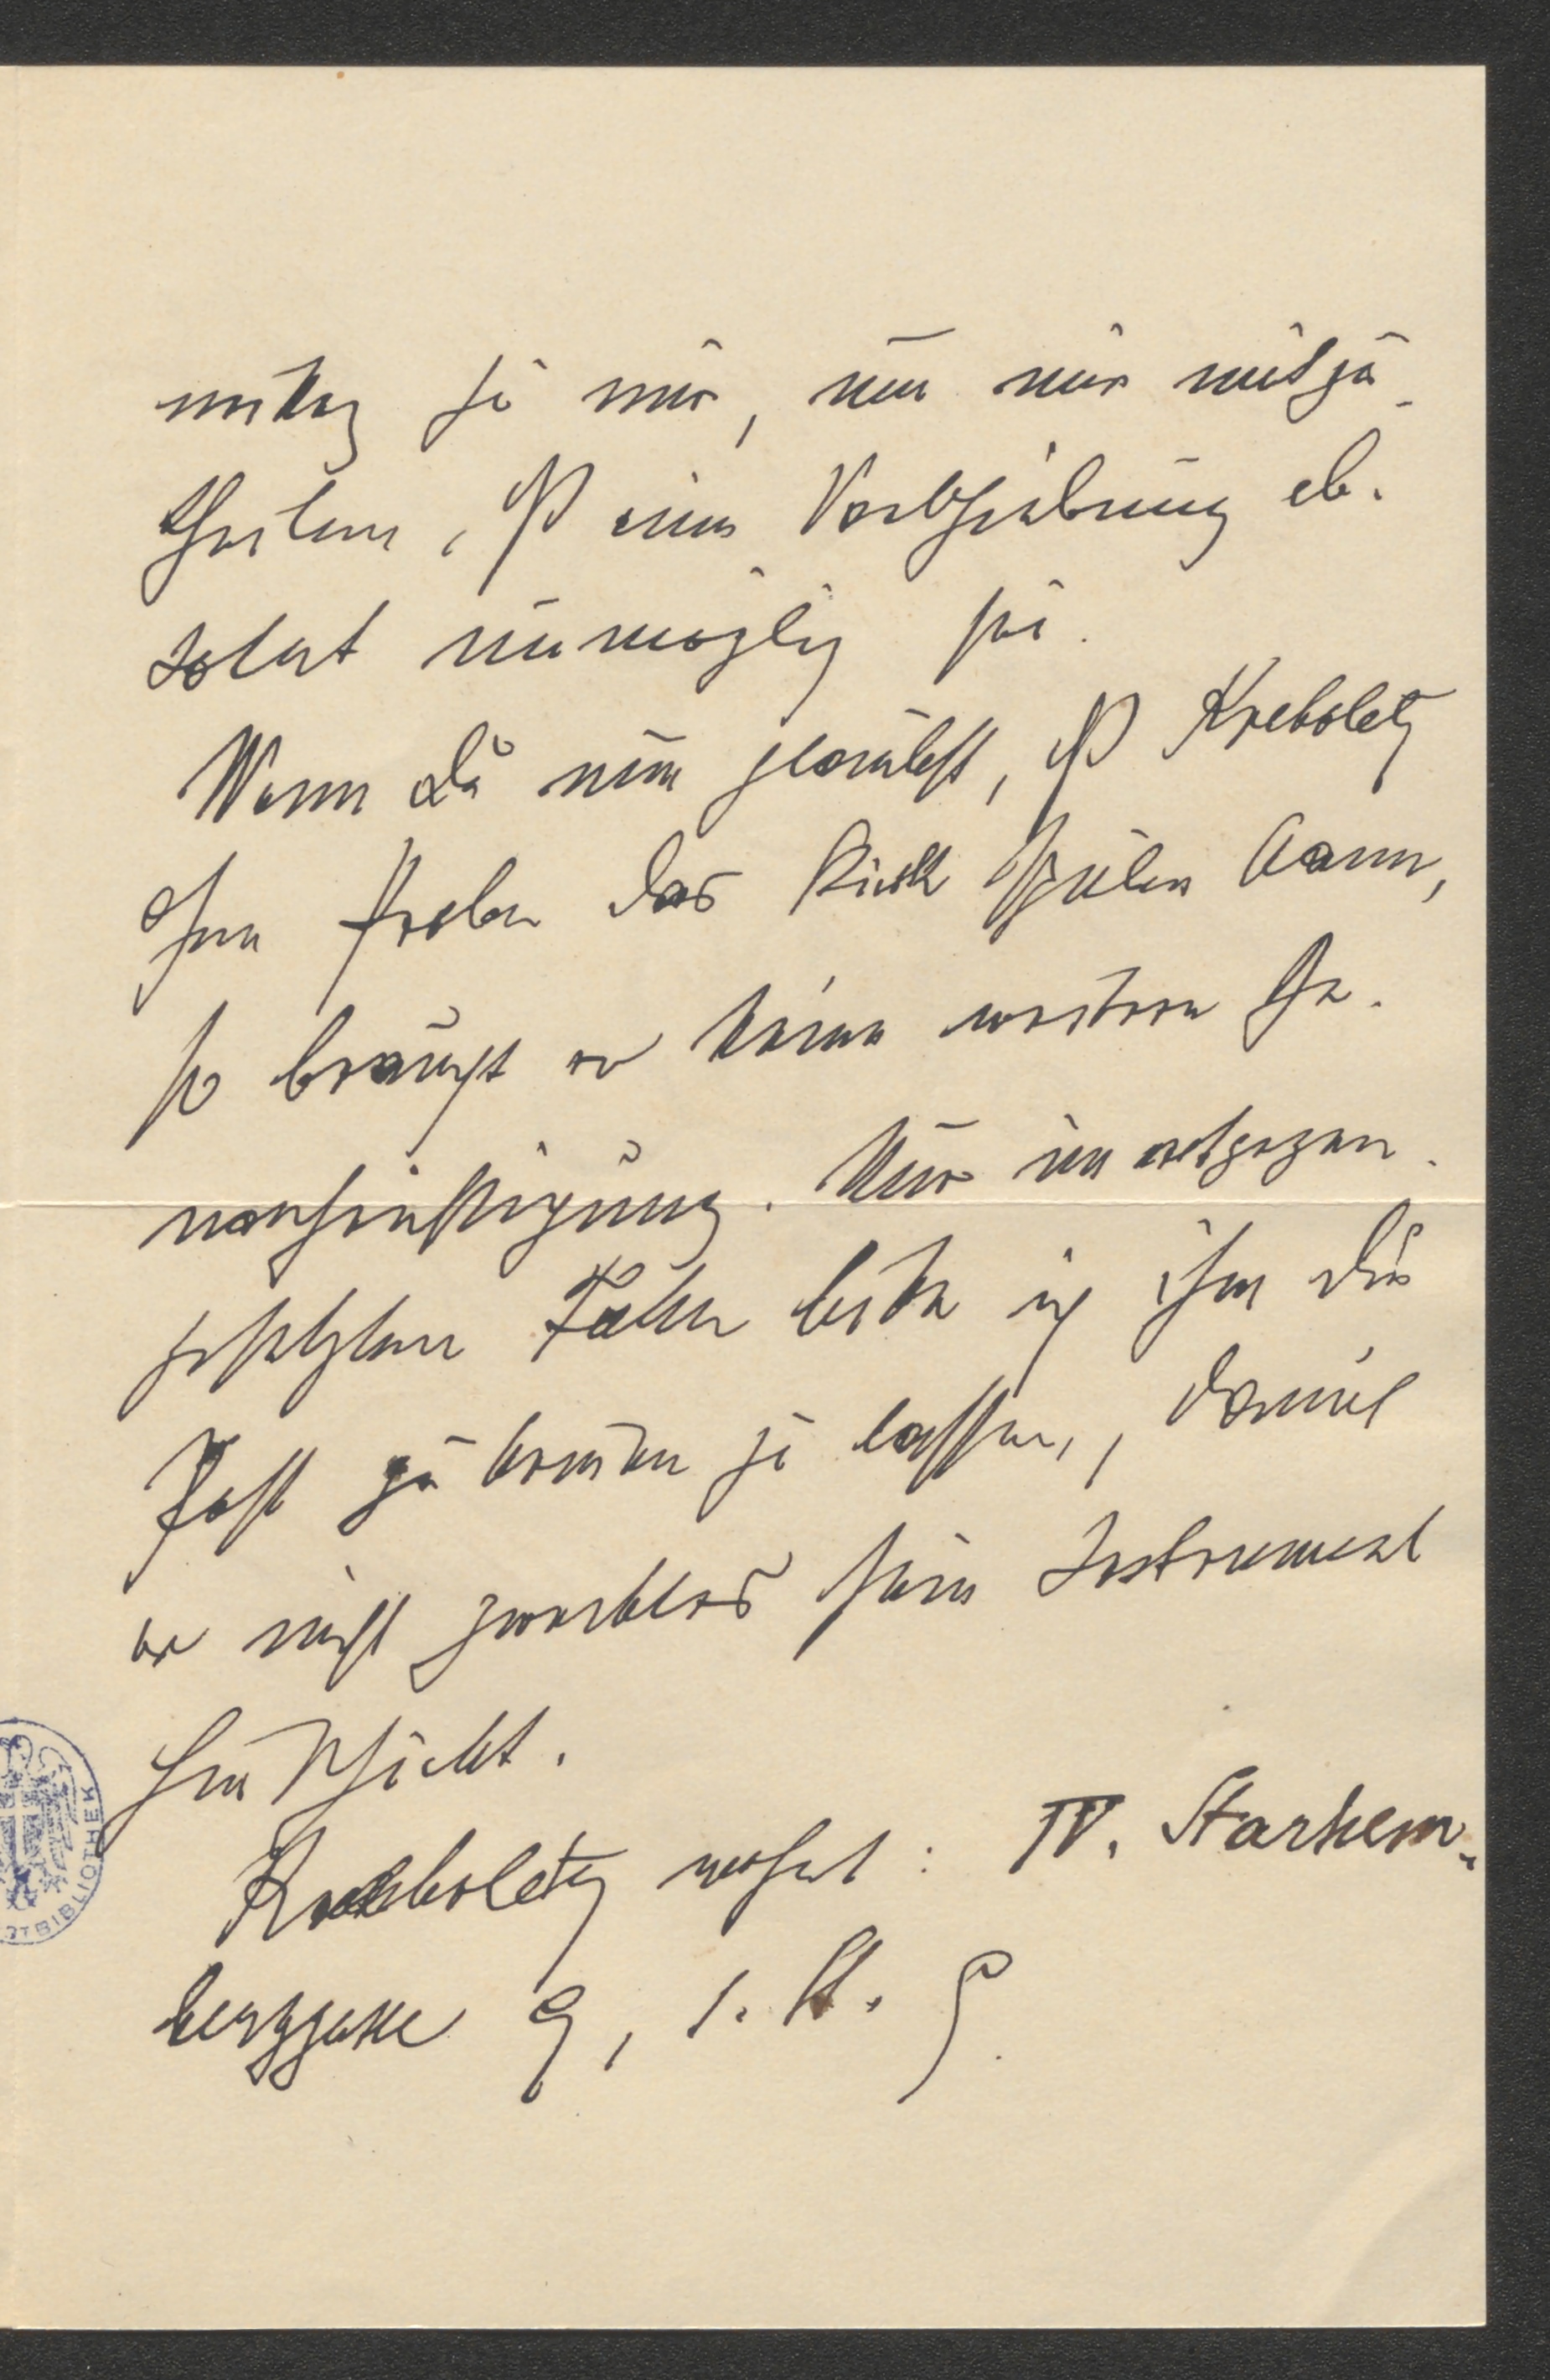 mittag zu mir, um mir mitzu-
theilen, dß eine Verschiebung ab-
solut unmöglich sei.
Wenn du nun glaubst, dß Kreboletz
ohne Proben das Stück spielen kann,
so braucht er keine weitere Be-
nachrichtigung. Nur im entgegen-
gesetzten Falle bitte ich ihm die
Post zukommen zu lassen, damit
er nicht zwecklos sein Instrument
hinschickt.
wohnt: IV. Starhem-
berggasse 9, 1. St.
BIBLIOTHEK